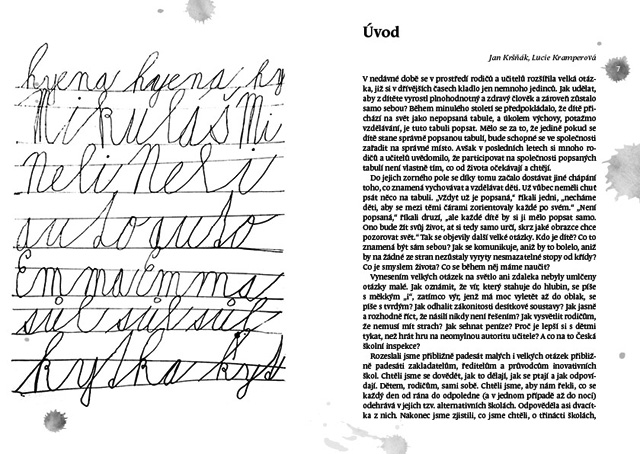 hyena hyena hy
Mikuláš Mi
neli Neli
auto auto
Emma Emma
sůl sůl sůl
kytka kyt
Úvod
Jan Kršňák, Lucie Kramperová
7
V nedávné době se v prostředí rodičů a učitelů rozšířila velká otáz-
ka, jíž si v dřívějších časech kladlo jen nemnoho jedinců. Jak udělat,
aby z dítěte vyrostl plnohodnotný a zdravý člověk a zároveň zůstalo
samo sebou? Během minulého století se předpokládalo, že dítě při-
chází na svět jako nepopsaná tabule, a úkolem výchovy, potažmo
vzdělávání, je tuto tabuli popsat. Mělo se za to, že jedině pokud se
dítě stane správně popsanou tabulí, bude schopné se ve společnosti
zařadit na správné místo. Avšak v posledních letech si mnoho ro-
dičů a učitelů uvědomilo, že participovat na společnosti popsaných
tabulí není vlastně tím, co od života očekávají a chtějí.
Do jejich zorného pole se díky tomu začalo dostávat jiné chápání
toho, co znamená vychovávat a vzdělávat děti. Už vůbec neměli chuť
psát něco na tabuli. „Vždyť už je popsaná,“ říkali jedni, „necháme
děti, aby se mezi těmi čárami zorientovaly každé po svém.“ „Není
popsaná,“ říkali druzí, „ale každé dítě by si ji mělo popsat samo.
Ono bude žít svůj život, ať si tedy samo určí, skrz jaké obrazce chce
pozorovat svět.“ Tak se objevily další velké otázky. Kdo je dítě? Co to
znamená být sám sebou? Jak se komunikuje, aniž by to bolelo, aniž
by na žádné ze stran nezůstaly vyryty nesmazatelné stopy od křídy?
Co je smyslem života? Co se během něj máme naučit?
Vynesením velkých otázek na světlo ani zdaleka nebyly umlčeny
otázky malé. Jak oznámit, že vír, který stahuje do hlubin, se píše
s měkkým „i“, zatímco výr, jenž má moc vyletět až do oblak, se
píše s tvrdým? Jak odhalit zákonitosti desítkové soustavy? Jak jasně
a rozhodně říct, že násilí nikdy není řešením? Jak vysvětlit rodičům,
že nemusí mít strach? Jak sehnat peníze? Proč je lepší si s dětmi
tykat, než hrát hru na neomylnou autoritu učitele? A co na to Česká
školní inspekce?
Rozeslali jsme přibližně padesát malých i velkých otázek přibliž-
ně padesáti zakladatelům, ředitelům a průvodcům inovativních
škol. Chtěli jsme se dovědět, jak to dělají, jak se ptají a jak odpoví-
dají. Dětem, rodičům, sami sobě. Chtěli jsme, aby nám řekli, co se
každý den od rána do odpoledne (a v jednom případě až do noci)
odehrává v jejich tzv. alternativních školách. Odpověděla asi dvacít-
ka z nich. Nakonec jsme zjistili, co jsme chtěli, o třinácti školách,